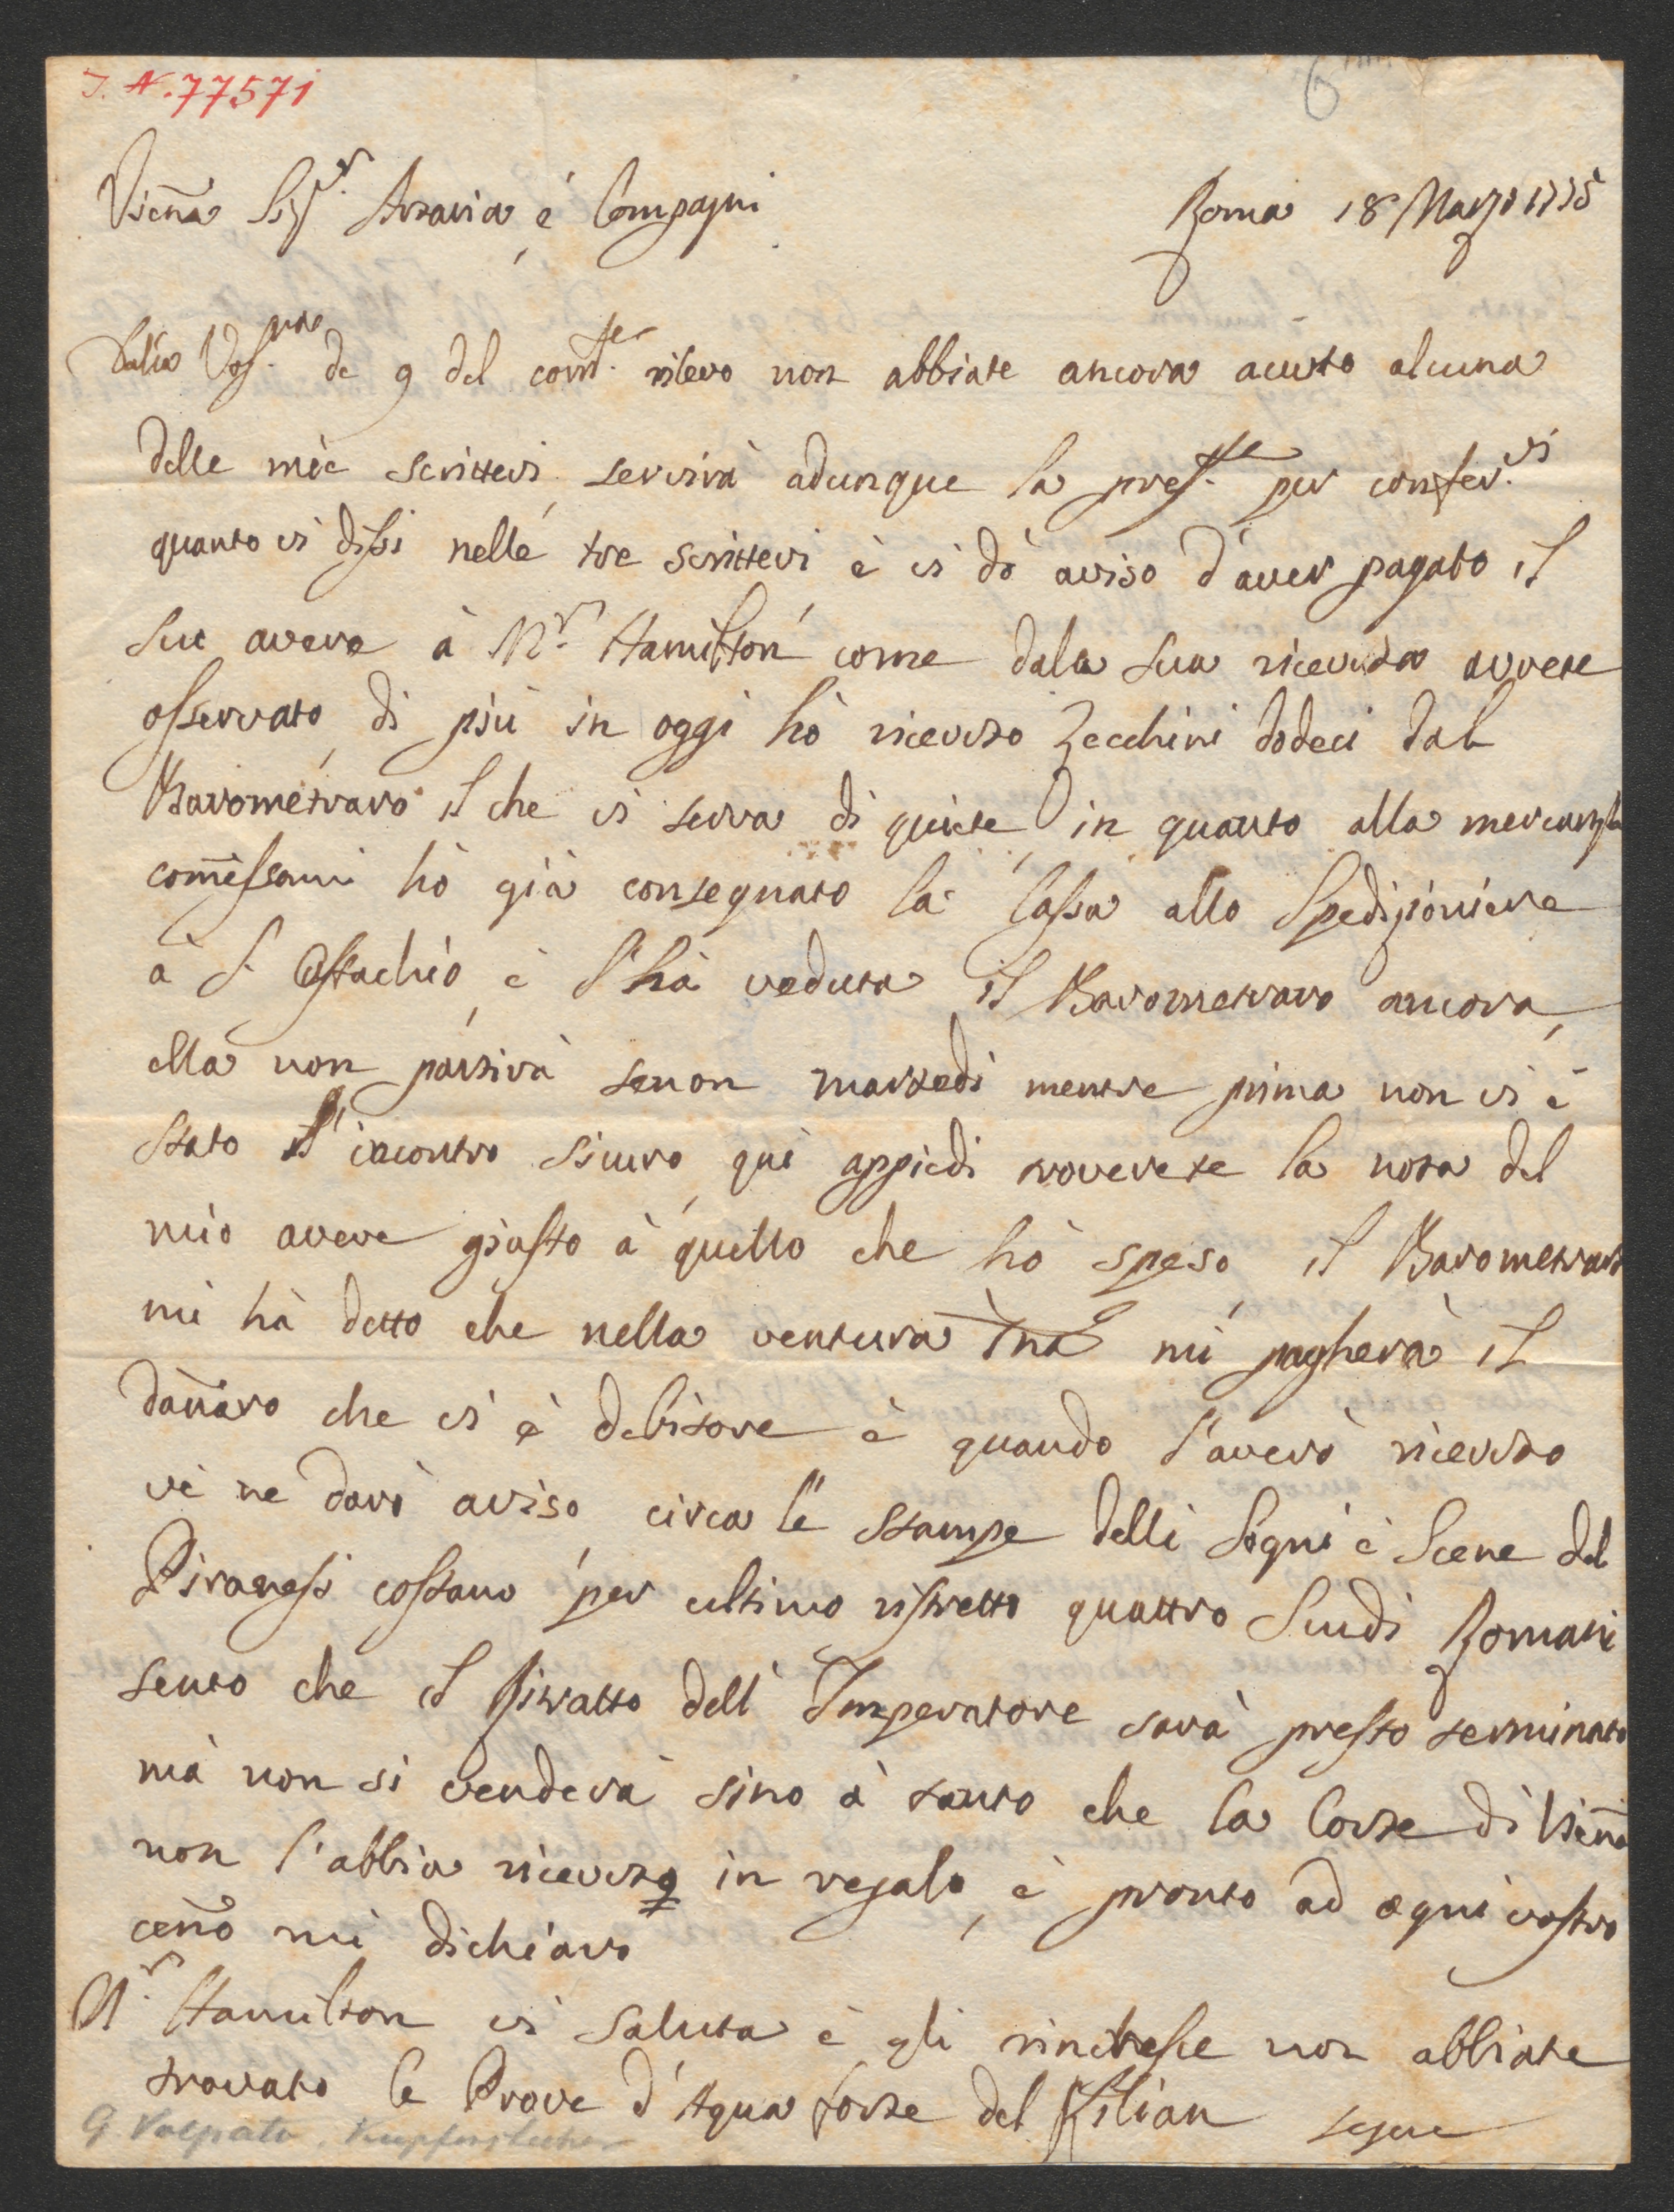 I. N. 77571
6
Vieña Sig.r Artaria, è Compagni
Roma 18 Marzo 1775
Dalla Vos.tra de 9 del corr.te rilevo non abbiate ancora auuto alcuna
delle mie scrittevi, servirà adunque la pres.te per confer.vi
quanto vi dissi nelle tre scrittevi, è vi dò aviso d'auer pagato il
suo avere à M.r Hamilton, come dala sua riceuuta avrete
osservato, di più in oggi hò riceuuto Zecchini dodeci dal
Barometraro il che vi serva di quiete, in quanto alla mercanzia
comessami hò già consegnato la Cassa allo Spedizioniere
à S. Ostachio, è l'hà veduta il Barometraro ancora,
ella non partirà senon martedi mentre prima non vi è
stato l'incontro sicuro, qui appiedi troverete la nota del
mio avere giusto à quello che hò speso, il Barometraro
mi hà detto che nella ventura mi pagherà il
dañaro che vi è debitore è quando l'averò riceuuto
vè ne darò aviso, circa le stampe delli Sogni è Scene del
Piranesi costano per ultimo ristretto quattro Scudi Romani
sento che il Ritratto dell' Imperatore sarà presto terminato
mà non si venderà sino à tanto che la Corte di Vieña
non l'abbia riceuuto in regalo, è pronto ad ogni vostro
ceño mi dichiaro
M.r Hamilton vi saluta è gli rincresce non abbiate
trovato le Prove d'Aqua forte del Kilian segue
G. Volpato, Kupferstecher